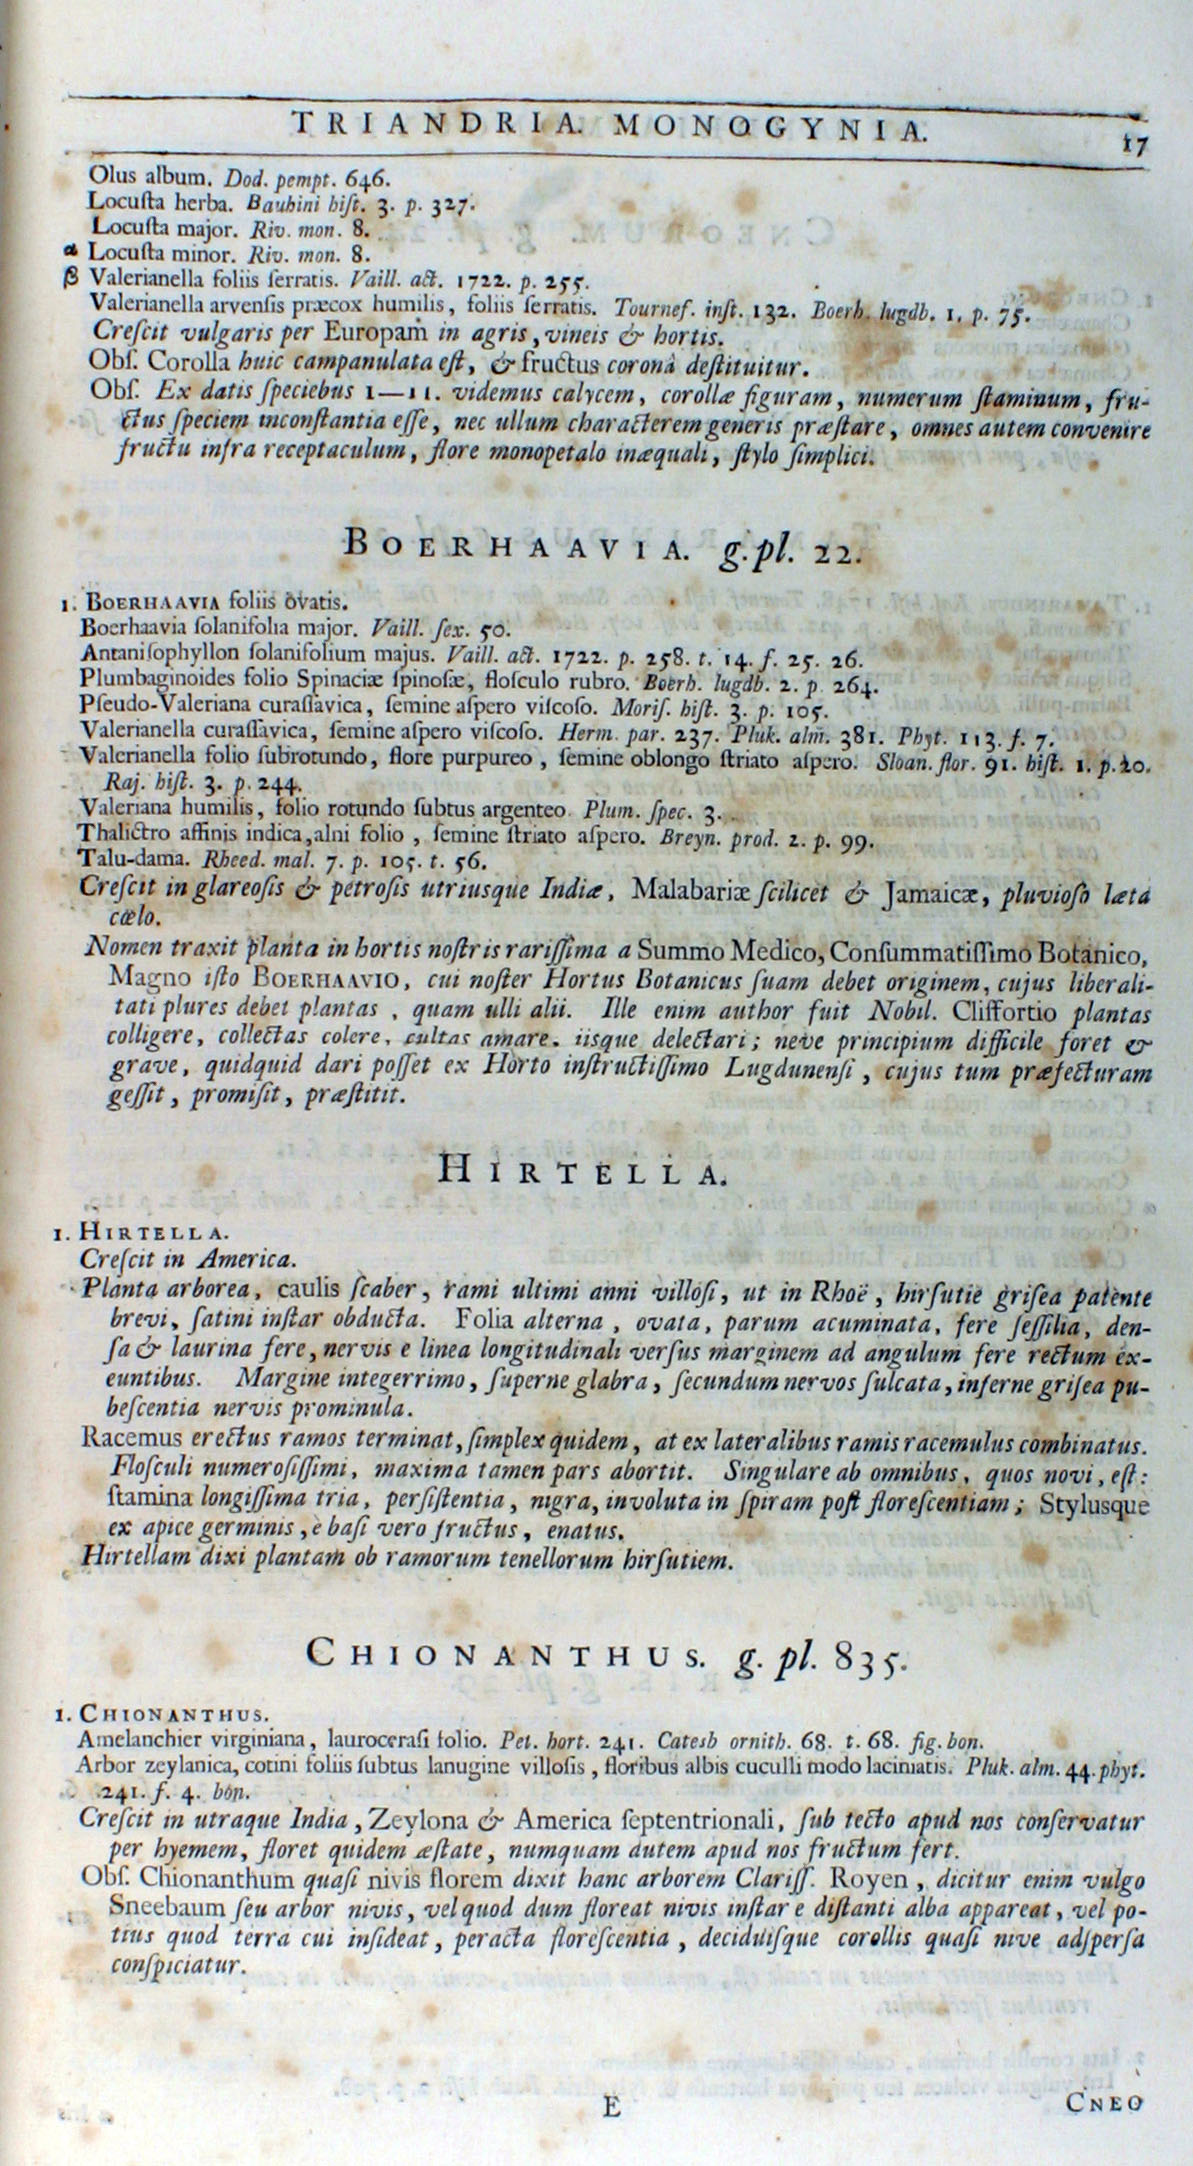 TRIANDRIA. MONOGYNIA. 17
Olus album. Dod. pempt. 646.
Locuſta herba. Bauhini hiſt. 3. p. 327.
Locuſta major. Riv. mon. 8.
α Locuſta minor. Riv. mon. 8.
β Valerianella foliis ſerratis. Vaill. act. 1722. p. 255.
Valerianella arvenſis præcox humilis, foliis ſerratis. Tournef. inſt. 132. Boerh. lugdb. 1. p. 75.
Creſcit vulgaris per Europam in agris, vineis & hortis.
Obſ. Corolla huic campanulata eſt, & fructus coronâ deſtituitur.
Obſ. Ex datis ſpeciebus 1—11. videmus calycem, corollæ figuram, numerum ſtaminum, fru-
ctus ſpeciem inconſtantia eſſe, nec ullum characterem generis præſtare, omnes autem convenire
fructu infra receptaculum, flore monopetalo inæquali, ſtylo ſimplici.
BOERHAAVIA. g. pl. 22.
1. BOERHAAVIA foliis ovatis.
Boerhaavia ſolanifolia major. Vaill. ſex. 50.
Antaniſophyllon ſolanifolium majus. Vaill. act. 1722. p. 258. t. 14. f. 25. 26.
Plumbaginoides folio Spinaciæ ſpinoſæ, floſculo rubro. Boerh. lugdb. 2. p. 264.
Pſeudo-Valeriana curaſſavica, ſemine aſpero viſcoſo. Moriſ. hiſt. 3. p. 105.
Valerianella curaſſavica, ſemine aſpero viſcoſo. Herm. par. 237. Pluk. alm. 381. Phyt. 113. f. 7.
Valerianella folio ſubrotundo, flore purpureo, ſemine oblongo ſtriato aſpero. Sloan. flor. 91. hiſt. 1. p. 20.
Raj. hiſt. 3. p. 244.
Valeriana humilis, folio rotundo ſubtus argenteo. Plum. ſpec. 3.
Thalictro affinis indica, alni folio, ſemine ſtriato aſpero. Breyn. prod. 2. p. 99.
Talu-dama. Rheed. mal. 7. p. 105. t. 56.
Creſcit in glareoſis & petroſis utriusque Indiæ, Malabariæ ſcilicet & Jamaicæ, pluvioſo læta
cælo.
Nomen traxit planta in hortis noſtris rariſſima a Summo Medico, Conſummatiſſimo Botanico,
Magno iſto BOERHAAVIO, cui noſter Hortus Botanicus ſuam debet originem, cujus liberali-
tati plures debet plantas, quam ulli alii. Ille enim author fuit Nobil. Cliffortio plantas
colligere, collectas colere, cultas amare, iisque delectari; neve principium difficile foret &
grave, quidquid dari poſſet ex Horto inſtructiſſimo Lugdunenſi, cujus tum præfecturam
geſſit, promiſit, præſtitit.
HIRTELLA.
1. HIRTELLA.
Creſcit in America.
Planta arborea, caulis ſcaber, rami ultimi anni villoſi, ut in Rhoë, hirſutie griſea patente
brevi, ſatini inſtar obducta. Folia alterna, ovata, parum acuminata, fere ſeſſilia, den-
ſa & laurina fere, nervis e linea longitudinali verſus marginem ad angulum fere rectum ex-
euntibus. Margine integerrimo, ſuperne glabra, ſecundum nervos ſulcata, inferne griſea pu-
beſcentia nervis prominula.
Racemus erectus ramos terminat, ſimplex quidem, at ex lateralibus ramis racemulus combinatus.
Floſculi numeroſiſſimi, maxima tamen pars abortit. Singulare ab omnibus, quos novi, eſt:
ſtamina longiſſima tria, perſiſtentia, nigra, involuta in ſpiram poſt floreſcentiam; Stylusque
ex apice germinis, e baſi vero fructus, enatus.
Hirtellam dixi plantam ob ramorum tenellorum hirſutiem.
CHIONANTHUS. g. pl. 835.
1. CHIONANTHUS.
Amelanchier virginiana, lauroceraſi folio. Pet. hort. 241. Catesb ornith. 68. t. 68. fig. bon.
Arbor zeylanica, cotini foliis ſubtus lanugine villoſis, floribus albis cuculli modo laciniatis. Pluk. alm. 44. phyt.
241. f. 4. bon.
Creſcit in utraque India, Zeylona & America ſeptentrionali, ſub tecto apud nos conſervatur
per hyemem, floret quidem æſtate, numquam autem apud nos fructum fert.
Obſ. Chionanthum quaſi nivis florem dixit hanc arborem Clariſſ. Royen, dicitur enim vulgo
Sneebaum ſeu arbor nivis, vel quod dum floreat nivis inſtar e diſtanti alba appareat, vel po-
tius quod terra cui inſideat, peracta floreſcentia, deciduiſque corollis quaſi nive adſperſa
conſpiciatur.
E CNEO